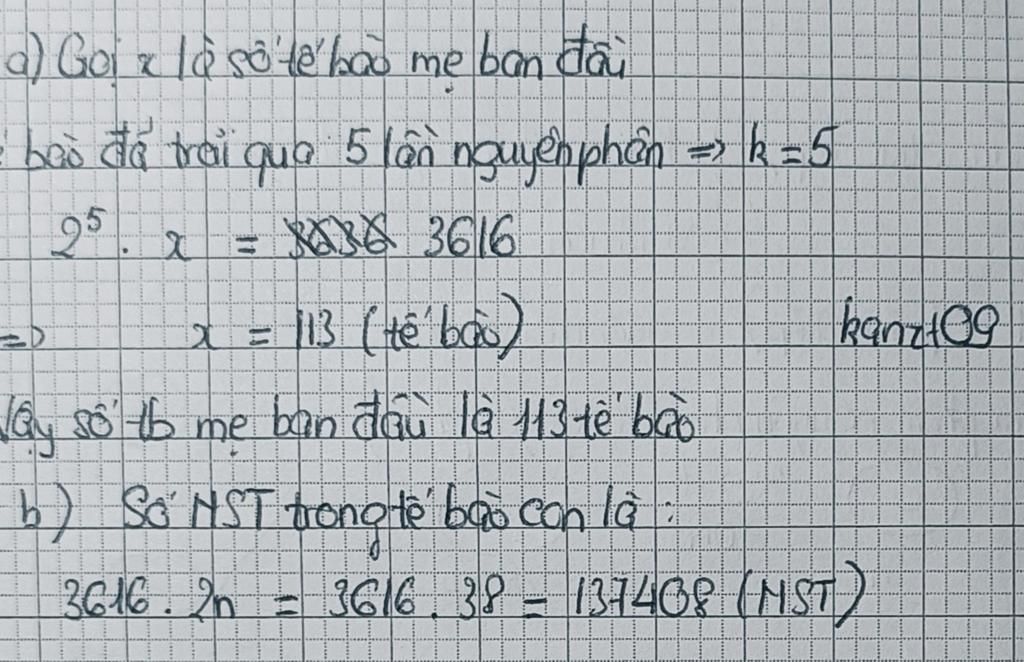 a) Gọi x là số tế bào mẹ ban đầu
bào đã trải qua 5 lần nguyên phân => k = 5
2⁵ . x = 3636 3616
=> x = 113 (tế bào)
kanzt09
Vậy số tb mẹ ban đầu là 113 tế bào
b) Số NST trong tế bào con là :
3616 . 2n = 3616 . 38 = 137408 (NST)